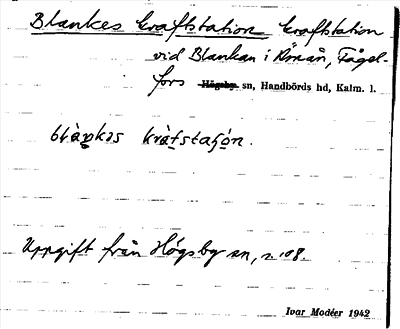 Blankes kraftstation kraftstation
vid Blankan i Emån, Fågel-
fors Högsby sn, Handbörds hd, Kalm. l.
Uppgift från Högsby sn, s. 108.
Ivar Modéer 1942